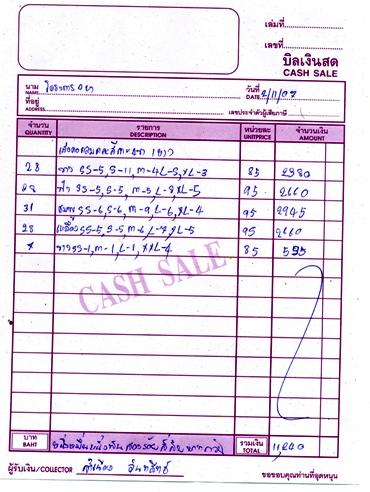 เล่มที่
เลขที่
บิลเงินสด
CASH SALE
นาม
NAME
วันที่
DATE 2/11/07
ที่อยู่
ADDRESS
เลขประจำตัวผู้เสียภาษี
จำนวน QUANTITY รายการ DESCRIPTION หน่วยละ UNITPRICE จำนวนเงิน AMOUNT
28 ขาว SS-5, S-11, M-4 L-5, XL-3 85 2380
28 ฟ้า SS-5, S-5, M-5, L-8, XL-5 95 2660
31 ชมพู SS-6, S-6, M-9, L-6, XL-4 95 2945
28 เหลือง SS-5, S-5, M-6, L-7, XL-5 95 2660
7 ขาว SS-1, M-1, L-1, XXL-4 85 595
CASH SALE
บาท
BAHT
รวมเงิน
TOTAL 11,240
ผู้รับเงิน/COLLECTOR
ขอขอบคุณท่านที่อุดหนุน